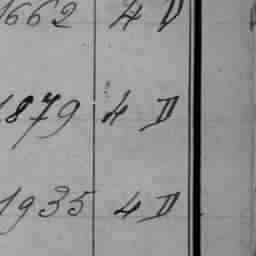 1662 4 D
1879 4 D
1935 4 D